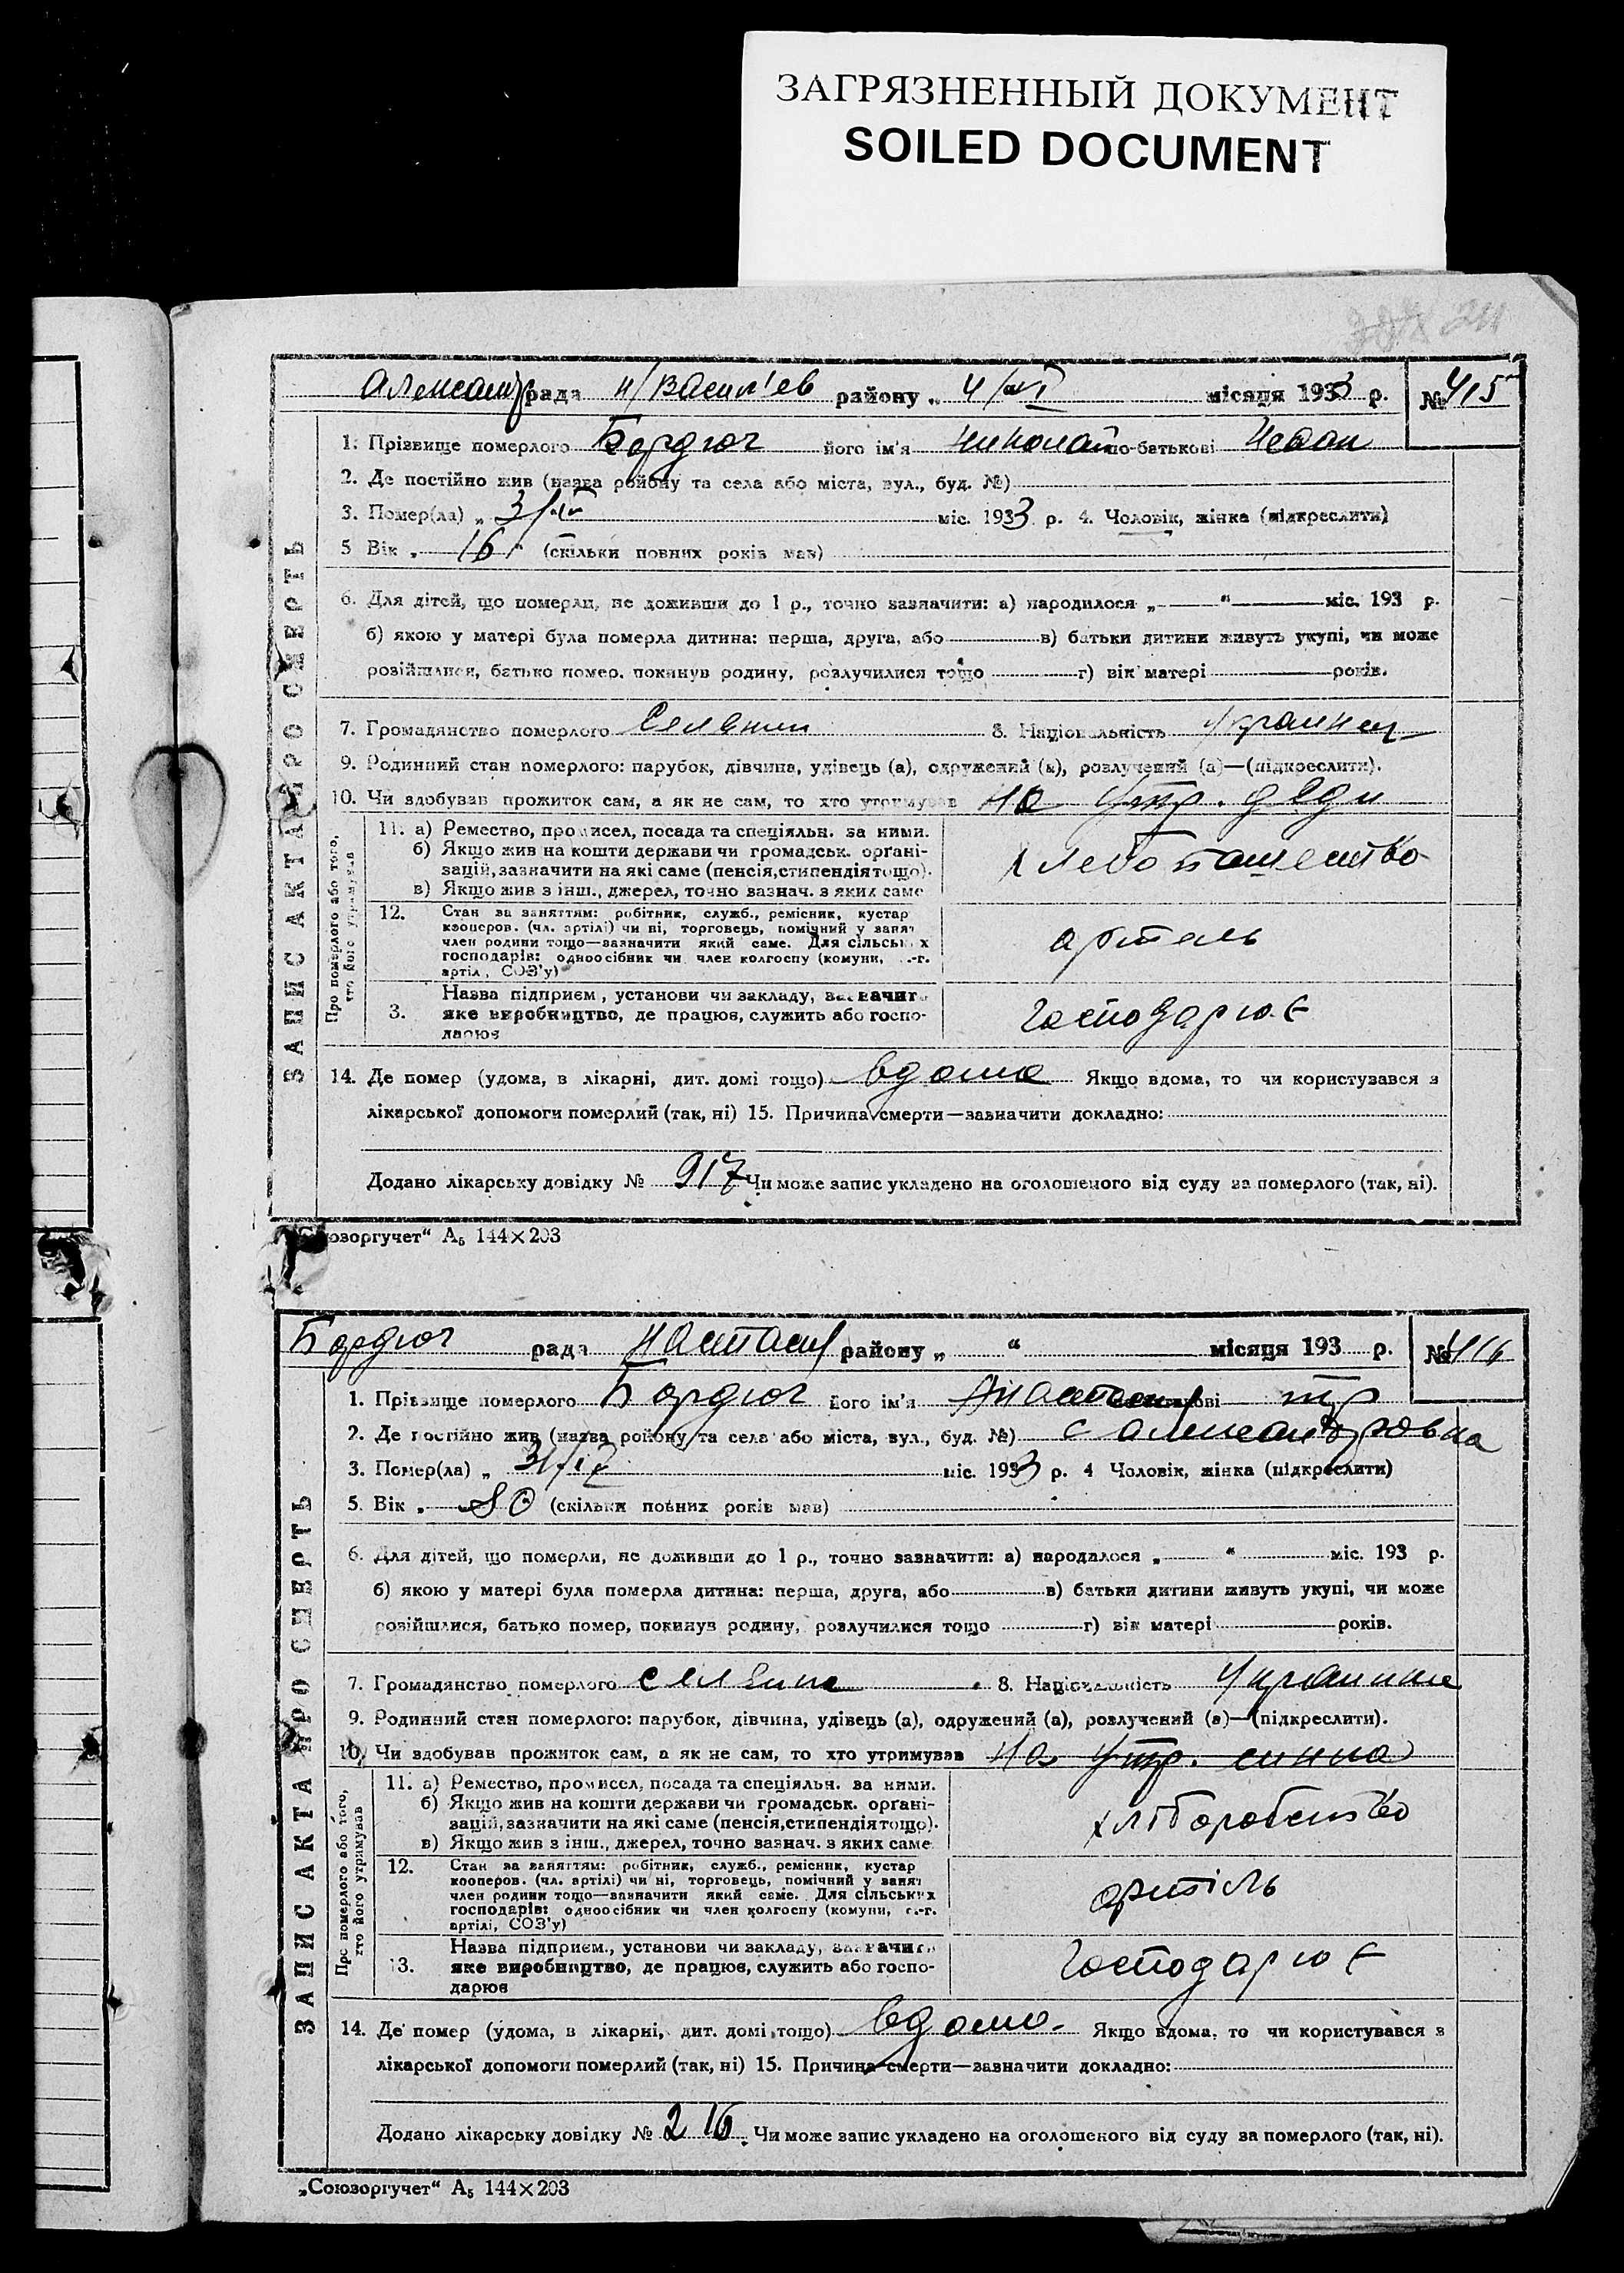 ЗАГРЯЗНЕННЫЙ ДОКУМЕНТ
SOILED DOCUMENT
рада н/Васил'ев району „ 4/VI місяця 1933 р. № 415
1. Прізвище померлого Бардюг його ім'я Николай по-батькові Иван
2. Де постійно жив (назва району та села або міста, вул., буд. №)
3. Помер(ла) „ міс. 1933 р. 4. Чоловік, жінка (підкреслити)
5 Вік „ 16 " (скільки повних років мав)
6. Для дітей, що померли, не доживши до 1 р., точно зазначити: а) народилося „ “ міс. 193 р.
б) якою у матері була померла дитина: перша, друга, або в) батьки дитини живуть укупі, чи може
розійшлися, батько помер, покинув родину, розлучилися тощо г) вік матері років.
7. Громадянство померлого 8. Національність Украинец
9. Родинний стан померлого: парубок, дівчина, удівець (а), одружений (а), розлучений (а)—(підкреслити).
10. Чи здобував прожиток сам, а як не сам, то хто утримував на утр. деди
Про померлого або того, хто його утримував
11. а) Ремество, промисел, посада та спеціяльн. за ними.
б) Якщо жив на кошти держави чи громадськ. органі-
зацій, зазначити на які саме (пенсія, стипендія тощо).
в) Якщо жив з інш., джерел, точно зазнач. з яких саме
хлебопашество
12. Стан за заняттям: робітник, служб., ремісник, кустар
кооперов. (чл. артілі) чи ні, торговець, помічний у занят
член родини тощо—зазначити який саме. Для сільських
господарів: одноосібник чи член колгоспу (комуни, с.-г.
артіл, СОЗ'у)
артель
3. Назва підприєм, установи чи закладу, зазначить
яке виробництво, де працює, служить або госпо-
дарює
Господарює
14. Де помер (удома, в лікарні, дит. домі тощо) вдома Якщо вдома, то чи користувався з
лікарської допомоги померлий (так, ні) 15. Причина смерти—зазначити докладно:
Додано лікарську довідку № 917 Чи може запис укладено на оголошеного від суду за померлого (так, ні).
ЗАПИС АКТА ПРО СМЕРТЬ
юзоргучет“ А₅ 144×203
Бардюг рада району „ “ місяця 193 р. № 416
1. Прізвище померлого Бардюг його ім'я тр
2. Де постійно жив (назва району та села або міста, вул., буд. №) с Александровка
3. Помер(ла) „ міс. 1933 р. 4 Чоловік, жінка (підкреслити)
5. Вік „ 80 (скільки повних років мав)
6. Для дітей, що померли, не доживши до 1 р., точно зазначити: а) народилося „ “ міс. 193 р.
б) якою у матері була померла дитина: перша, друга, або в) батьки дитини живуть укупі, чи може
розійшлися, батько помер, покинув родину, розлучилися тощо г) вік матері років.
7. Громадянство померлого 8. Національність
9. Родинний стан померлого: парубок, дівчина, удівець (а), одружений (а), розлучений (а)—(підкреслити).
10. Чи здобував прожиток сам, а як не сам, то хто утримував на утр. синна
Про померлого або того, хто його утримував
11. а) Ремество, промисел, посада та спеціяльн. за ними.
б) Якщо жив на кошти держави чи громадськ. органі-
зацій, зазначити на які саме (пенсія, стипендія тощо).
в) Якщо жив з інш., джерел, точно зазнач. з яких саме
хліборобство
12. Стан за заняттям: робітник, служб., ремісник, кустар
кооперов. (чл. артілі) чи ні, торговець, помічний у занят
член родини тощо—зазначити який саме. Для сільських
господарів: одноосібник чи член колгоспу (комуни, с.-г.
артілі, СОЗ'у)
артіль
13. Назва підприєм., установи чи закладу, зазначить
яке виробництво, де працює, служить або госпо-
дарює
Господарює
14. Де помер (удома, в лікарні, дит. домі тощо) вдома. Якщо вдома, то чи користувався з
лікарської допомоги померлий (так, ні) 15. Причина смерти—зазначити докладно:
Додано лікарську довідку № 216 Чи може запис укладено на оголошеного від суду за померлого (так, ні).
ЗАПИС АКТА ПРО СМЕРТЬ
„Союзоргучет“ А₅ 144×203